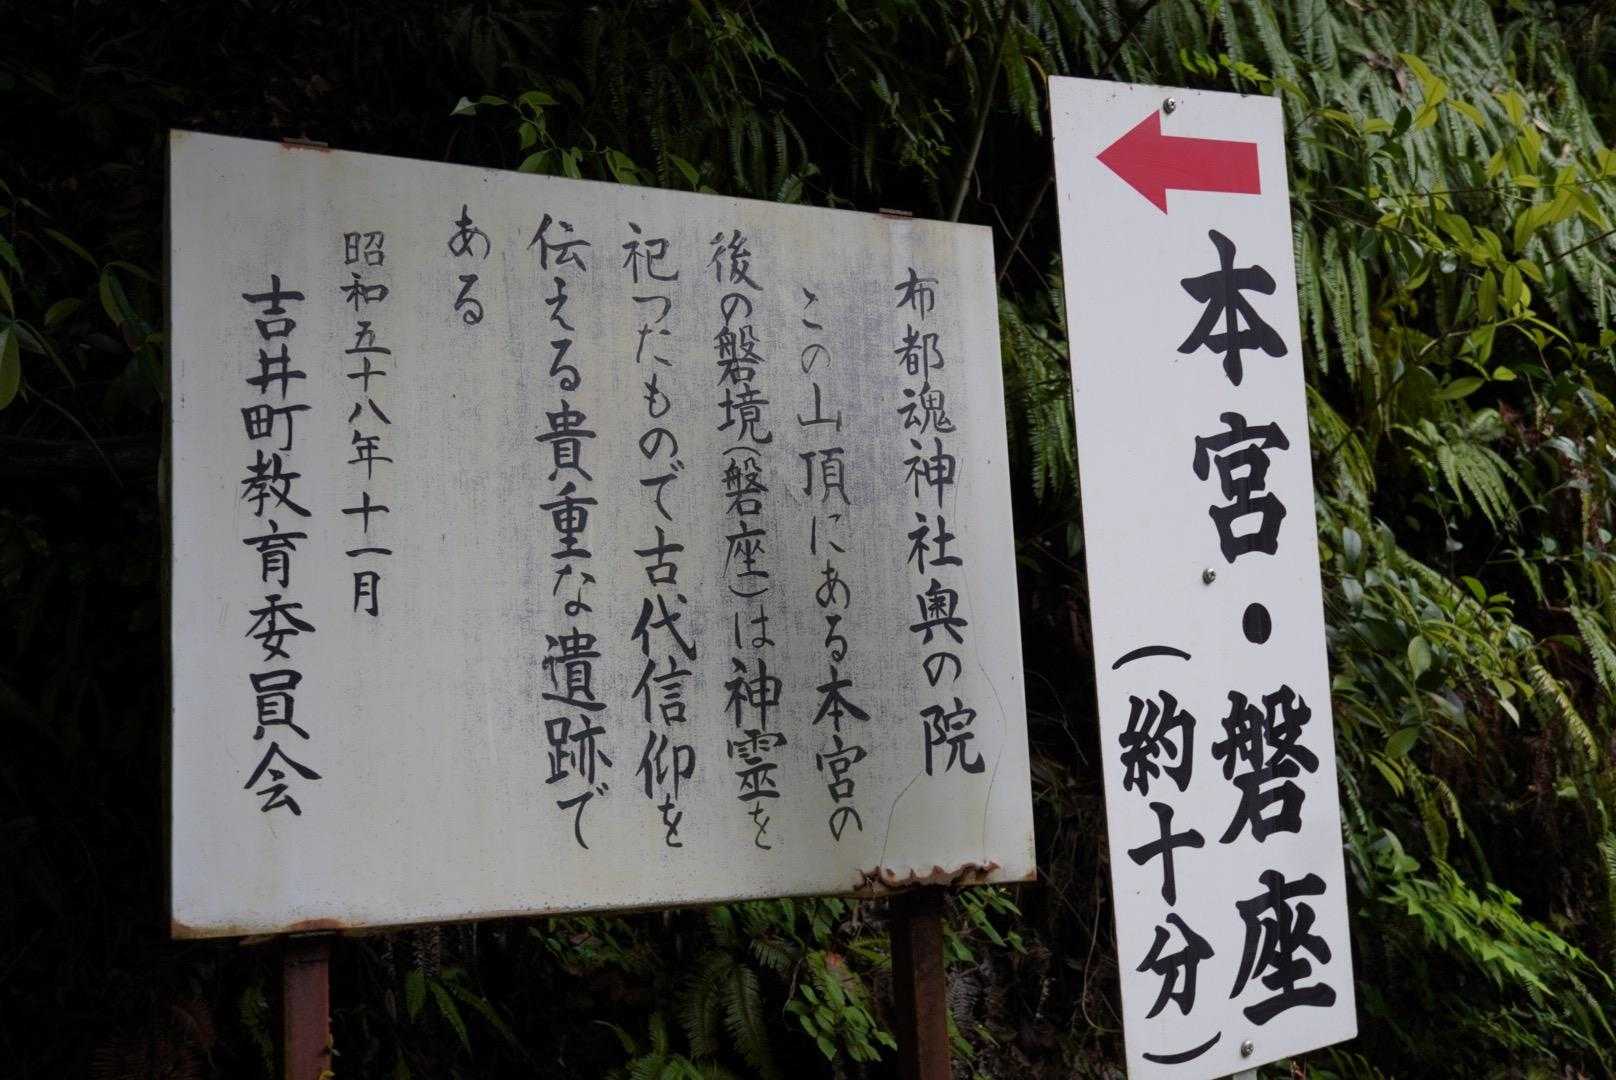 布都魂神社奥の院
この山頂にある本宮の
後の磐境(磐座)は神霊を
祀つたもので古代信仰を
伝える貴重な遺跡で
ある
昭和五十八年十一月
吉井町教育委員会
本宮・磐座
(約十分)